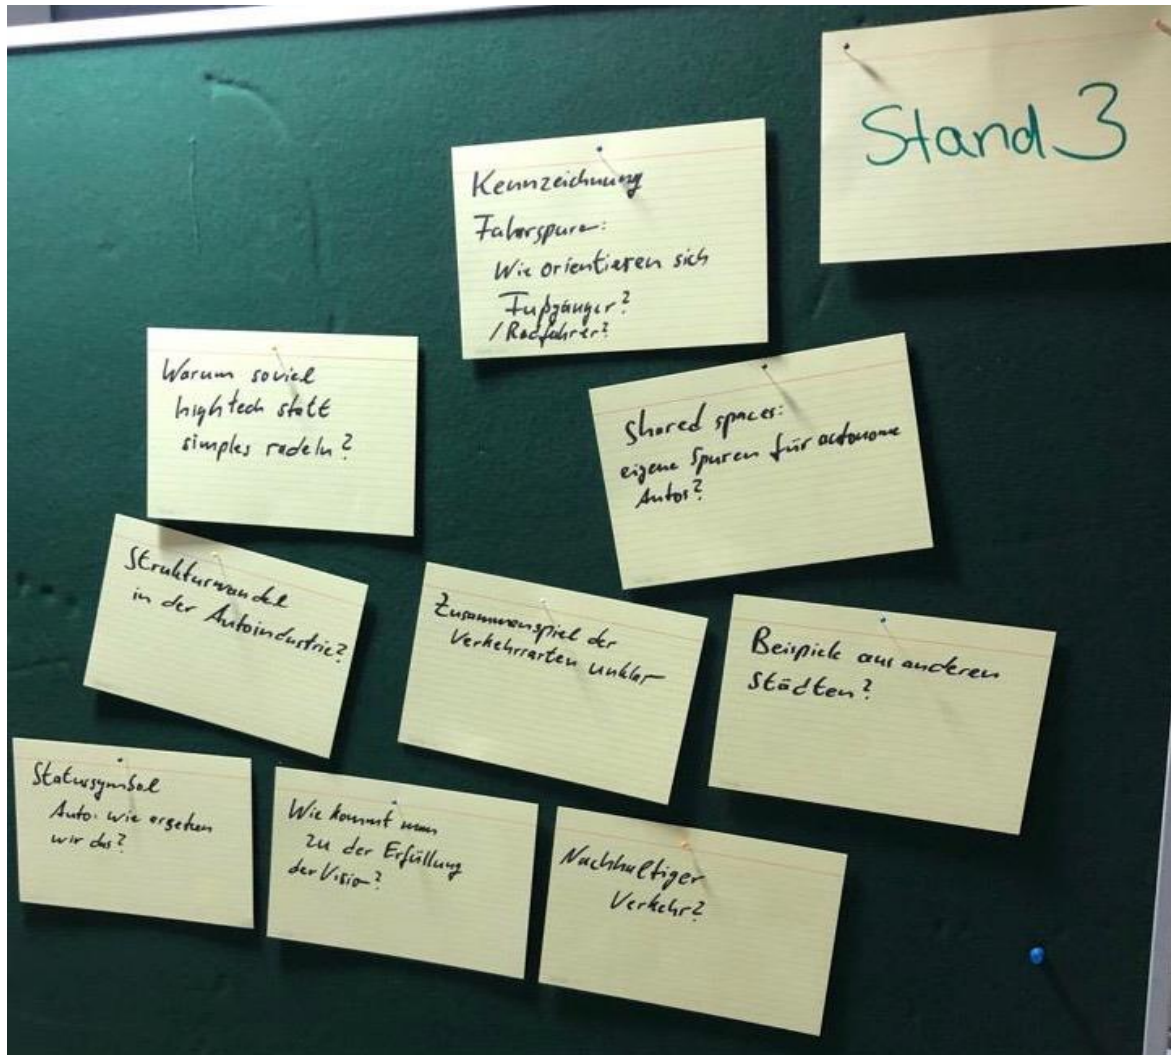 Stand 3
Kennzeichnung
Fahrspuren:
Wie orientieren sich
Fußgänger?
/Radfahrer?
Warum soviel
hightech statt
simples radeln?
Shared spaces:
eigene Spuren für autonome
Autos?
Strukturwandel
in der Autoindustrie?
Zusammenspiel der
Verkehrsarten unklar
Beispiele aus anderen
Städten?
Statussymbol
Auto: wie ersetzen
wir das?
Wie kommt man
zu der Erfüllung
der Vision?
Nachhaltiger
Verkehr?